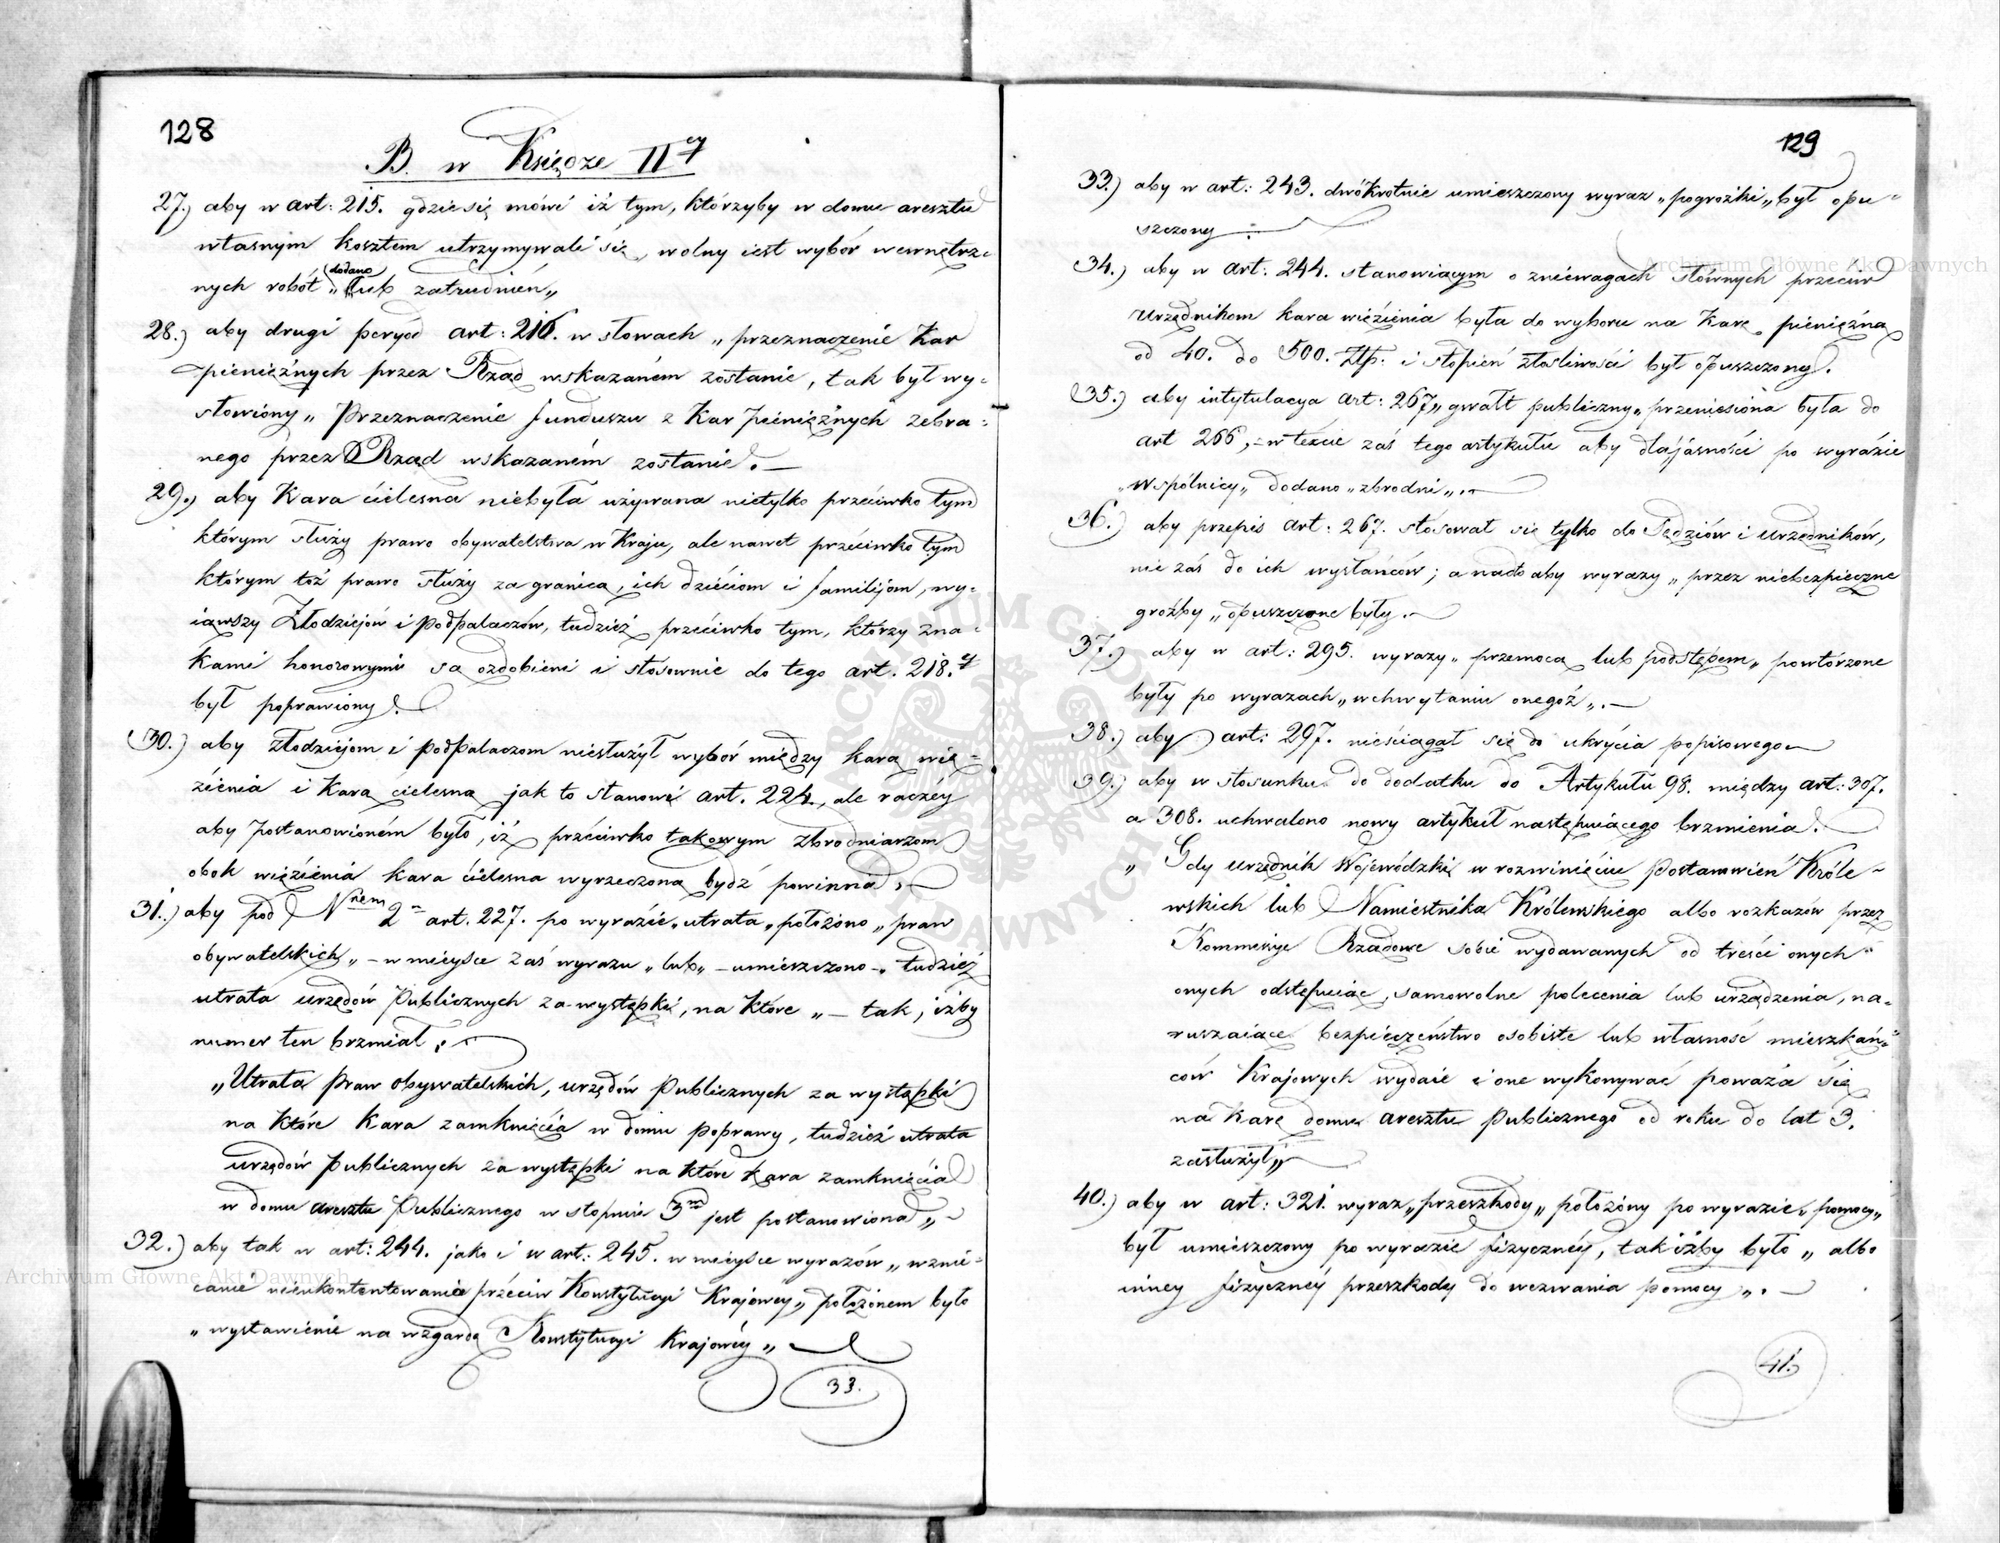 128
B. w Księdze II<sup>ey</sup>
27.) aby w art: 215. gdzie się mówi iż tym, którzyby w domu aresztu
własnym kosztem utrzymywali się, wolny iest wybór wewnętrz-
nych robót „dodano lub zatrudnień„
28.) aby drugi peryod art: 216. w słowach „przeznaczenie Kar
pieniężnych przez Rząd wskazaném zostanie, tak był wy-
słowiony„ Przeznaczenie funduszu z Kar pieniężnych zebra-
nego przez Rząd wskazaném zostanie. —
29.) aby Kara cielesna niebyła używana nietylko przeciwko tym
którym służy prawo obywatelstwa w Kraju, ale nawet przeciwko tym
którym toż prawo służy za granicą, ich dzieciom i familijom, wy-
iąwszy Złodziejów i podpalaczów, tudzież przeciwko tym, którzy zna-
kami honorowymi są ozdobieni i stosownie do tego art. 218.
był poprawiony.
30.) aby złodziejom i podpalaczom niesłużył wybór między karą wię-
zienia i Karą cielesną jak to stanowi art. 224., ale raczéy
aby postanowioném było, iż przeciwko takowym zbrodniarzom
obok więzienia kara cielesna wyrzeczoną bydź powinna. —
31.) aby pod N<sup>rem</sup> 2 art. 227. po wyrazie „utrata„ położono „praw
obywatelskich„ – w mieysce zaś wyrazu „lub„ – umieszczono – „tudzież
utrata urzędów Publicznych za występki, na które „ – tak, iżby
numer ten brzmiał:
„Utrata Praw obywatelskich, urzędów Publicznych za występki
na które Kara zamknięcia w domu poprawy, tudzież utrata
urzędów Publicznych za występki na które kara zamknięcia
w domu aresztu Publicznego w stopniu 3<sup>m</sup> jest postanowiona„ –
32.) aby tak w art: 244. jako i w art: 245. w mieysce wyrazów „wznie-
canie nieukontentowania przeciw Konstytucyi Krajowéy„ położonem było
„wystawienie na wzgardę Konstytucyi Krajowéy„ —
33.
129
33.) aby w art: 243. dwókrotnie umieszczony wyraz „pogrożki„ był opu-
szczony
34.) aby w art: 244. stanowiącym o zniewagach słównych przeciw
Urzędnikom kara więzienia była do wyboru na Karę pieniężną
od 40. do 500. Złp. i stopień złośliwości był opuszczony.
35.) aby intytulacya art: 267 „gwałt publiczny„ przeniesiona była do
art 266, – w texcie zaś tego artykułu aby dla jasności po wyrazie
„wspólnicy„ dodano „zbrodni„. —
36.) aby przepis art: 267. stósował się tylko do Sędziów i urzędników,
nie zaś do ich wysłańców; a nadto aby wyrazy „przez niebezpieczne
groźby„ opuszczone były. —
37.) aby w art: 295. wyrazy „przemocą lub podstępem„ powtórzone
były po wyrazach „wchwytaniu onegoż„. —
38.) aby art: 297. nieściągał się do ukrycia popisowego
39.) aby w stosunku do dodatku do Artykułu 98. między art: 307.
a 308. uchwalono nowy artykuł następuiącego brzmienia.
„Gdy urzędnik Wojewódzki w rozwinięciu Postanowień Króle-
wskich lub Namiestnika Królewskiego albo rozkazów przez
Kommissye Rządowe sobie wydawanych od treści onych
onych odstępuiąc, samowolne polecenia lub urządzenia, na-
ruszaiące bezpieczeństwo osobiste lub własność mieszkań-
ców Krajowych wydaie i one wykonywać poważa się
na karę domu aresztu Publicznego od roku do lat 3.
zasłużył„
40.) aby w art: 321. wyraz „przeszkody„ położóny po wyrazie „pomocy„
był umieszczony po wyrazie fizycznéy, tak iżby było „albo
inney fizycznéy przeszkody do wezwania pomocy„. —
41.
Archiwum Główne Akt Dawnych
Archiwum Główne Akt Dawnych
ARCHIWUM GŁÓWNE AKT DAWNYCH